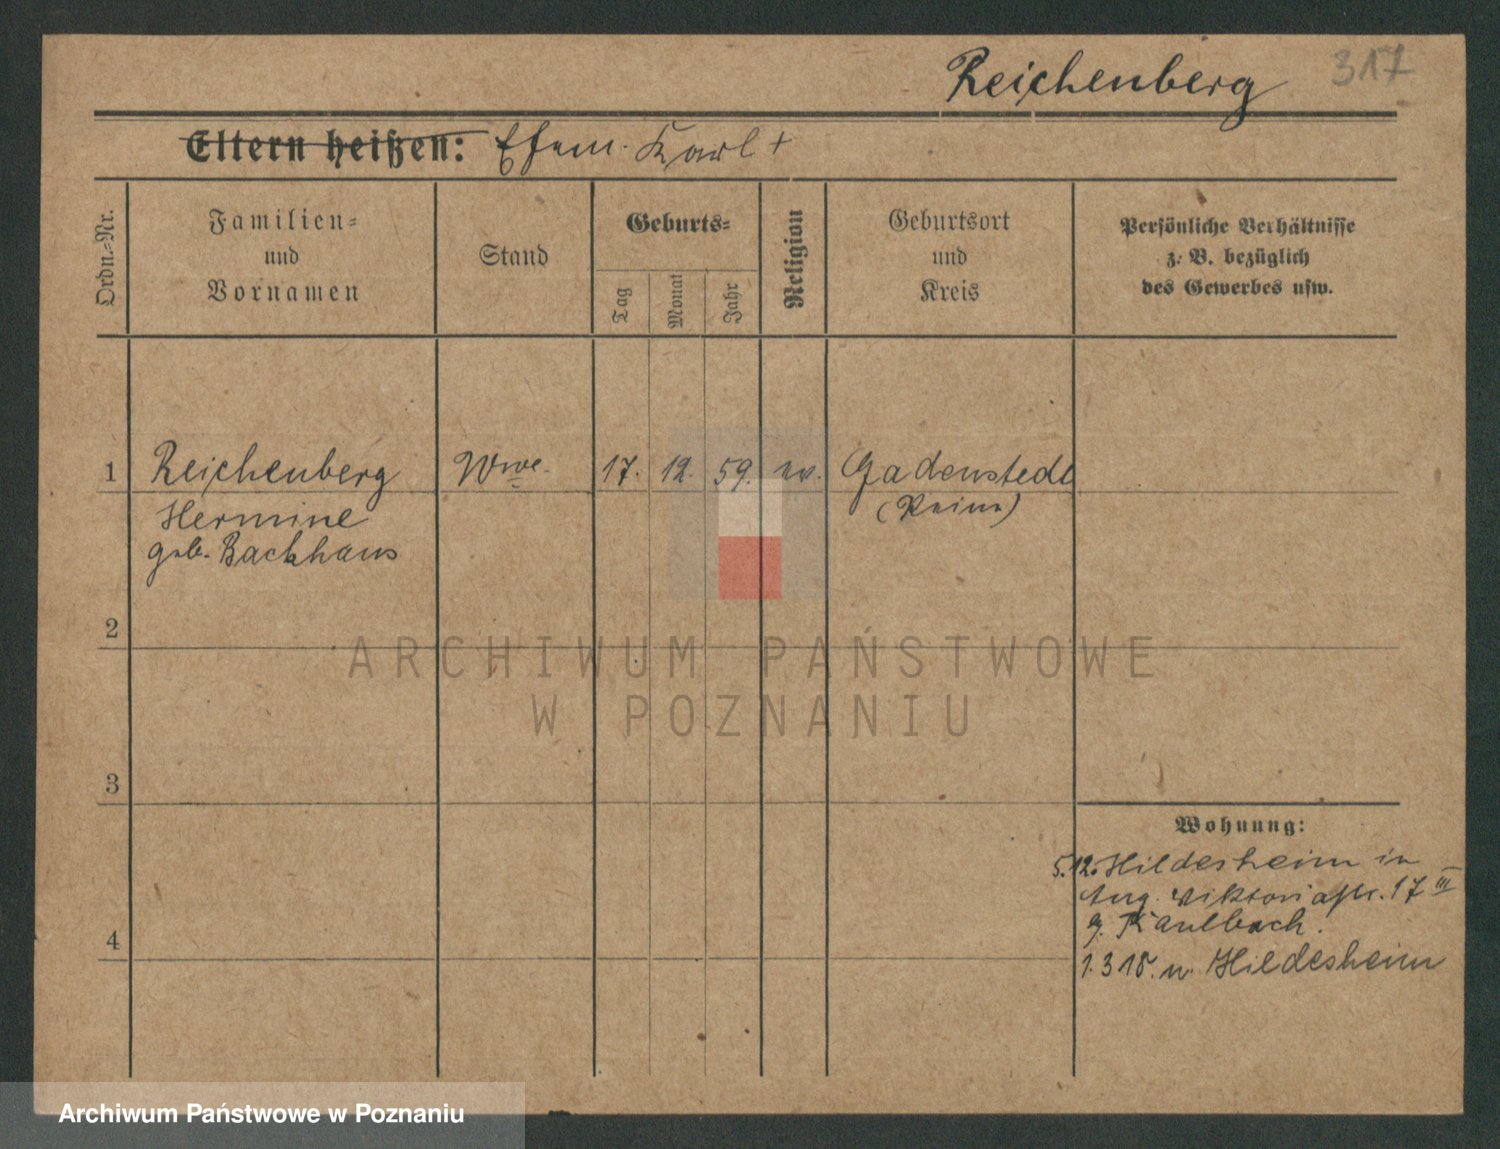 Reichenberg 317
Eltern heißen: Ehem. Karl +
Ordn.-Nr.
Familien-
und
Vornamen
Stand
Geburts-
Tag
Monat
Jahr
Religion
Geburtsort
und
Kreis
Persönliche Verhältnisse
z. B. bezüglich
des Gewerbes usw.
1 Reichenberg Wwe. 17. 12. 59. ev. Gadenstedt
Hermine (Peine)
geb. Backhaus
2
ARCHIWUM PAŃSTWOWE
W POZNANIU
3
Wohnung:
5.12. Hildesheim in
Aug. Viktoriastr. 17 III
b. Kaulbach.
4
1.3 18. n. Hildesheim
Archiwum Państwowe w Poznaniu